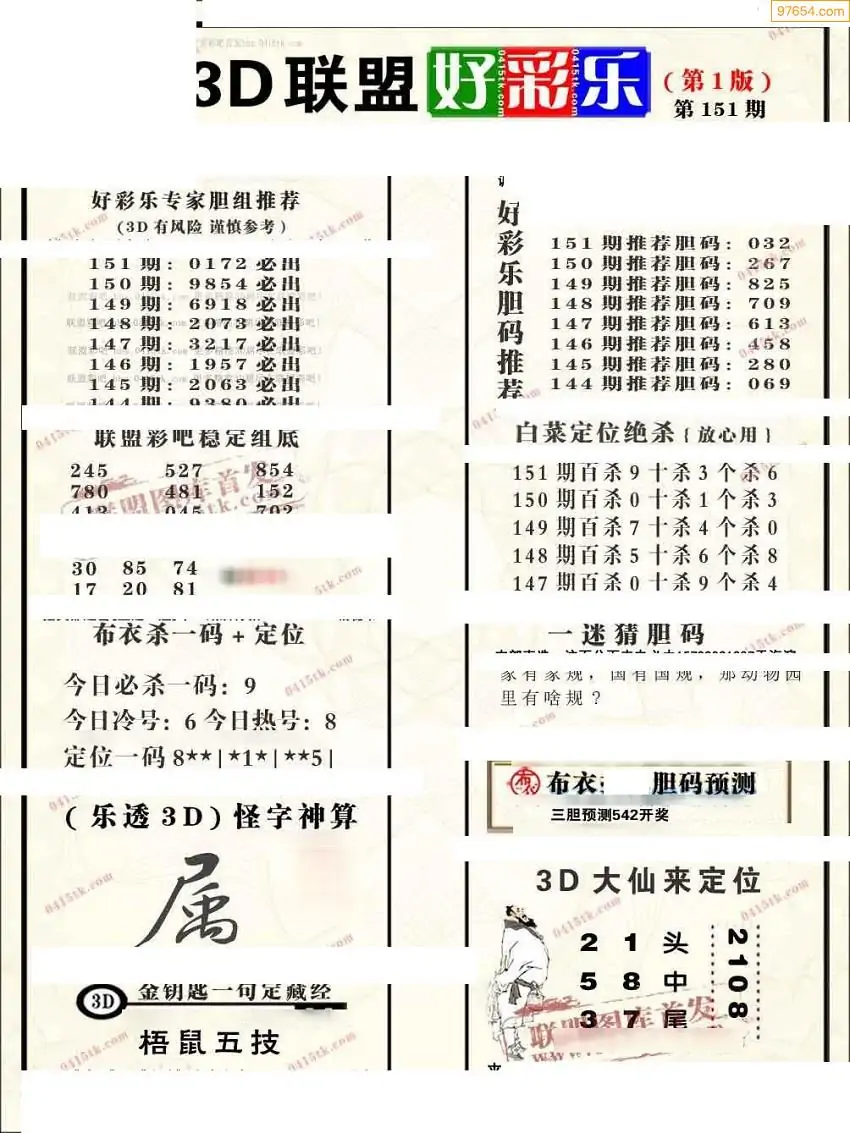 97654.com
3D联盟好彩乐
(第1版)
第151期
好彩乐专家胆组推荐
(3D有风险 谨慎参考)
151期: 0172必出
150期: 9854必出
149期: 6918必出
148期: 2073必出
147期: 3217必出
146期: 1957必出
145期: 2063必出
144期: 9380必出
联盟彩吧稳定组底
245 527 854
780 481 152
413 045 702
30 85 74
17 20 81
布衣杀一码+定位
今日必杀一码: 9
今日冷号: 6 今日热号: 8
定位一码 8**|*1*|**5|
(乐透3D)怪字神算
属
3D 金钥匙一句定藏经
梧鼠五技
好彩乐胆码推荐
151期推荐胆码: 032
150期推荐胆码: 267
149期推荐胆码: 825
148期推荐胆码: 709
147期推荐胆码: 613
146期推荐胆码: 458
145期推荐胆码: 280
144期推荐胆码: 069
白菜定位绝杀{放心用}
151期百杀9十杀3个杀6
150期百杀0十杀1个杀3
149期百杀7十杀4个杀0
148期百杀5十杀6个杀8
147期百杀0十杀9个杀4
一迷猜胆码
家有家规，国有国规，那动物园
里有啥规?
布衣: 胆码预测
三胆预测542开奖
3D大仙来定位
2 1 头
5 8 中
3 7 尾
2108
联盟图库首发
0415tk.com